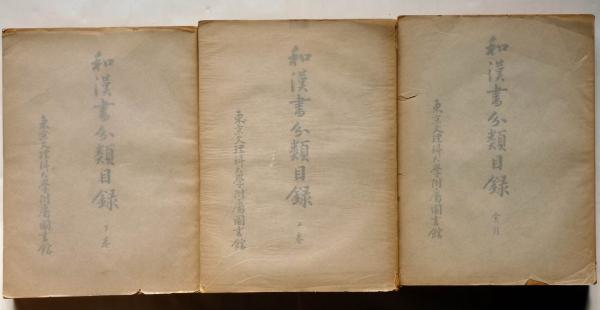 和漢書分類目録
東京文理科大學附屬圖書館
全一冊
和漢書分類目録
東京文理科大學附屬圖書館
上巻
和漢書分類目録
東京文理科大學附屬圖書館
下巻